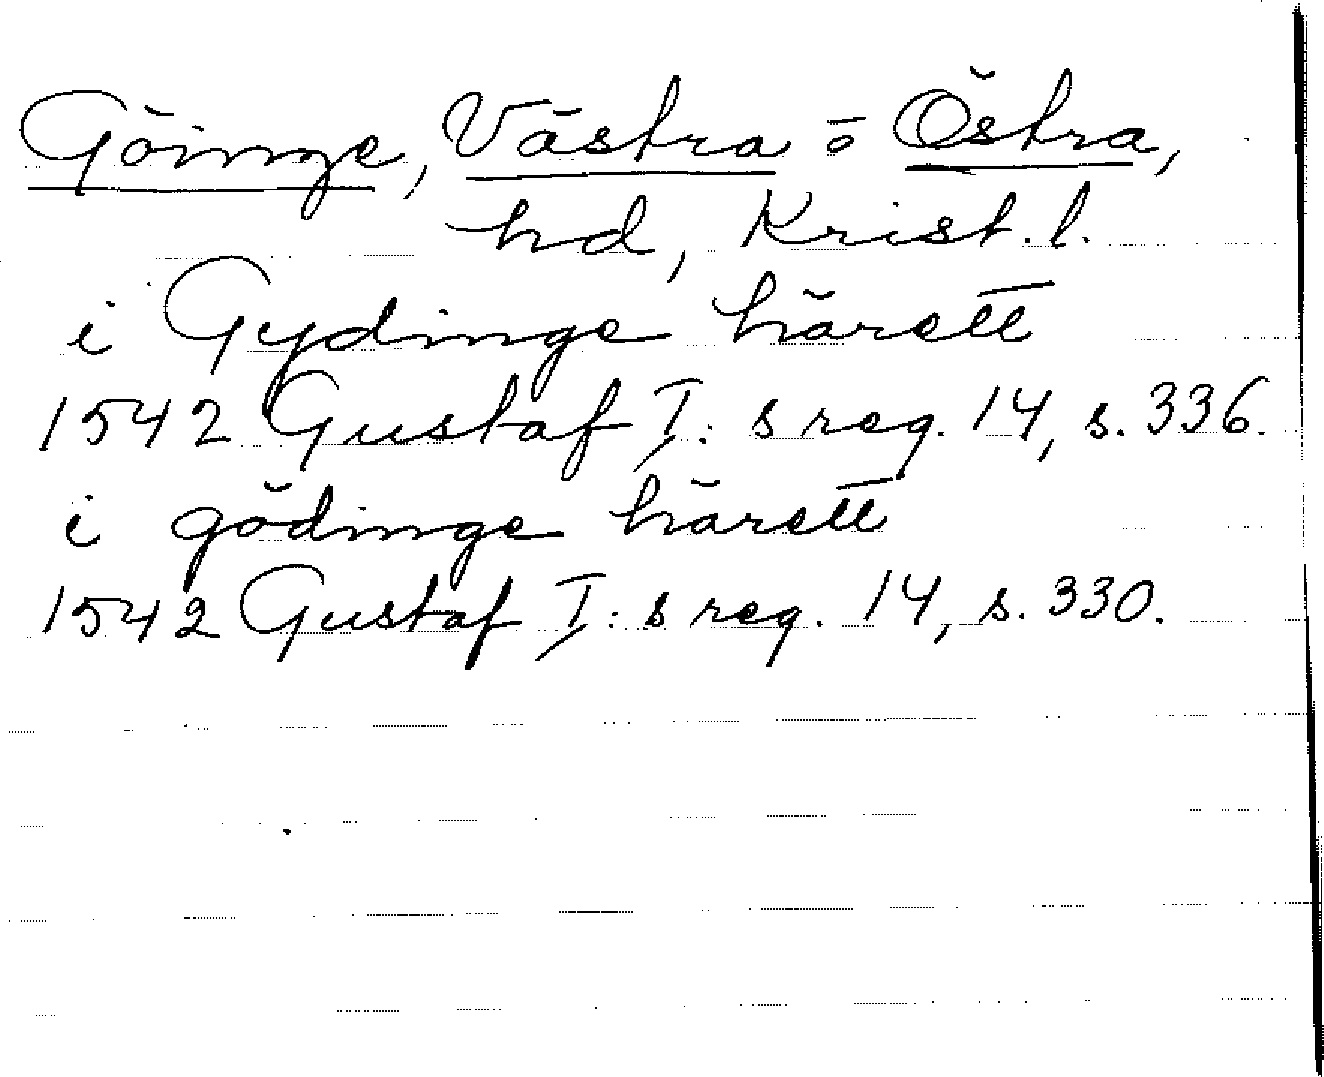 Göinge, Västra o Östra,
hd, Krist. l.
i Gydinge härett
1542 Gustaf I: s reg. 14, s. 336.
i gödinge härett
1542 Gustaf I: s reg. 14, s. 330.